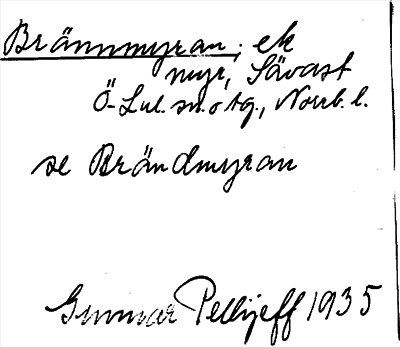 Brännmyran, ek
myr, Sävast
Ö-Lul. sn. o tg., Norrb. l.
se Brändmyran
Gunnar Pellijeff 1935